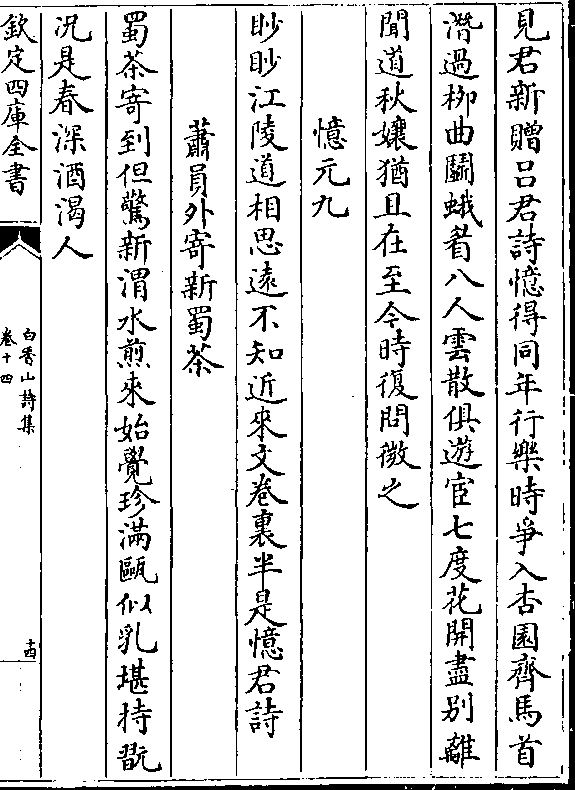 見君新贈吕君詩憶得同年行樂時爭入杏園齊馬首
潛過柳曲鬬蛾眉八人雲散俱遊宦七度花開盡别離
聞道秋孃猶且在至今時復問微之
憶元九
眇眇江陵道相思遠不知近來文卷裏半是憶君詩
蕭員外寄新蜀茶
蜀茶寄到但驚新渭水煎來始覺珍滿甌似乳堪持翫
況是春深酒渴人
欽定四庫全書
白香山詩集
卷十四
十四